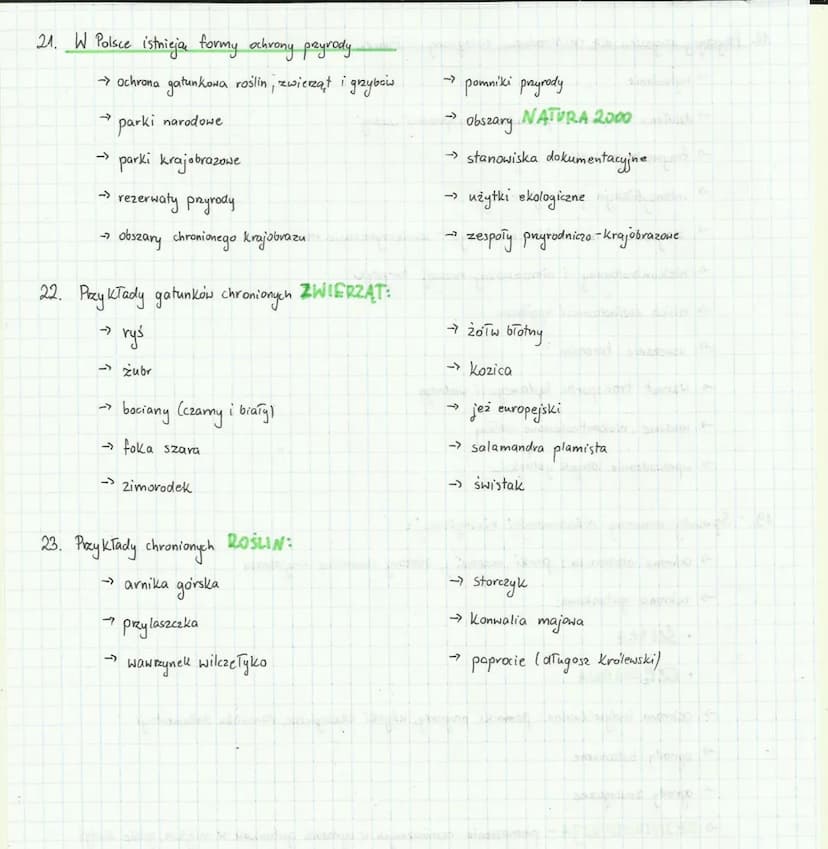 21. W Polsce istnieją formy ochrony przyrody
→ ochrona gatunkowa roślin, zwierząt i grzybów
→ parki narodowe
→ parki krajobrazowe
→ rezerwaty przyrody
→ obszary chronionego krajobrazu
→ pomniki przyrody
→ obszary NATURA 2000
→ stanowiska dokumentacyjne
→ użytki ekologiczne
→ zespoły przyrodniczo-krajobrazowe
22. Przykłady gatunków chronionych ZWIERZĄT:
→ ryś
→ żubr
→ bociany (czarny i biały)
→ foka szara
→ zimorodek
→ żółw błotny
→ kozica
→ jeż europejski
→ salamandra plamista
→ świstak
23. Przykłady chronionych ROŚLIN:
→ arnika górska
→ przylaszczka
→ wawrzynek wilczełyko
→ storczyk
→ konwalia majowa
→ paprocie (długosz królewski)